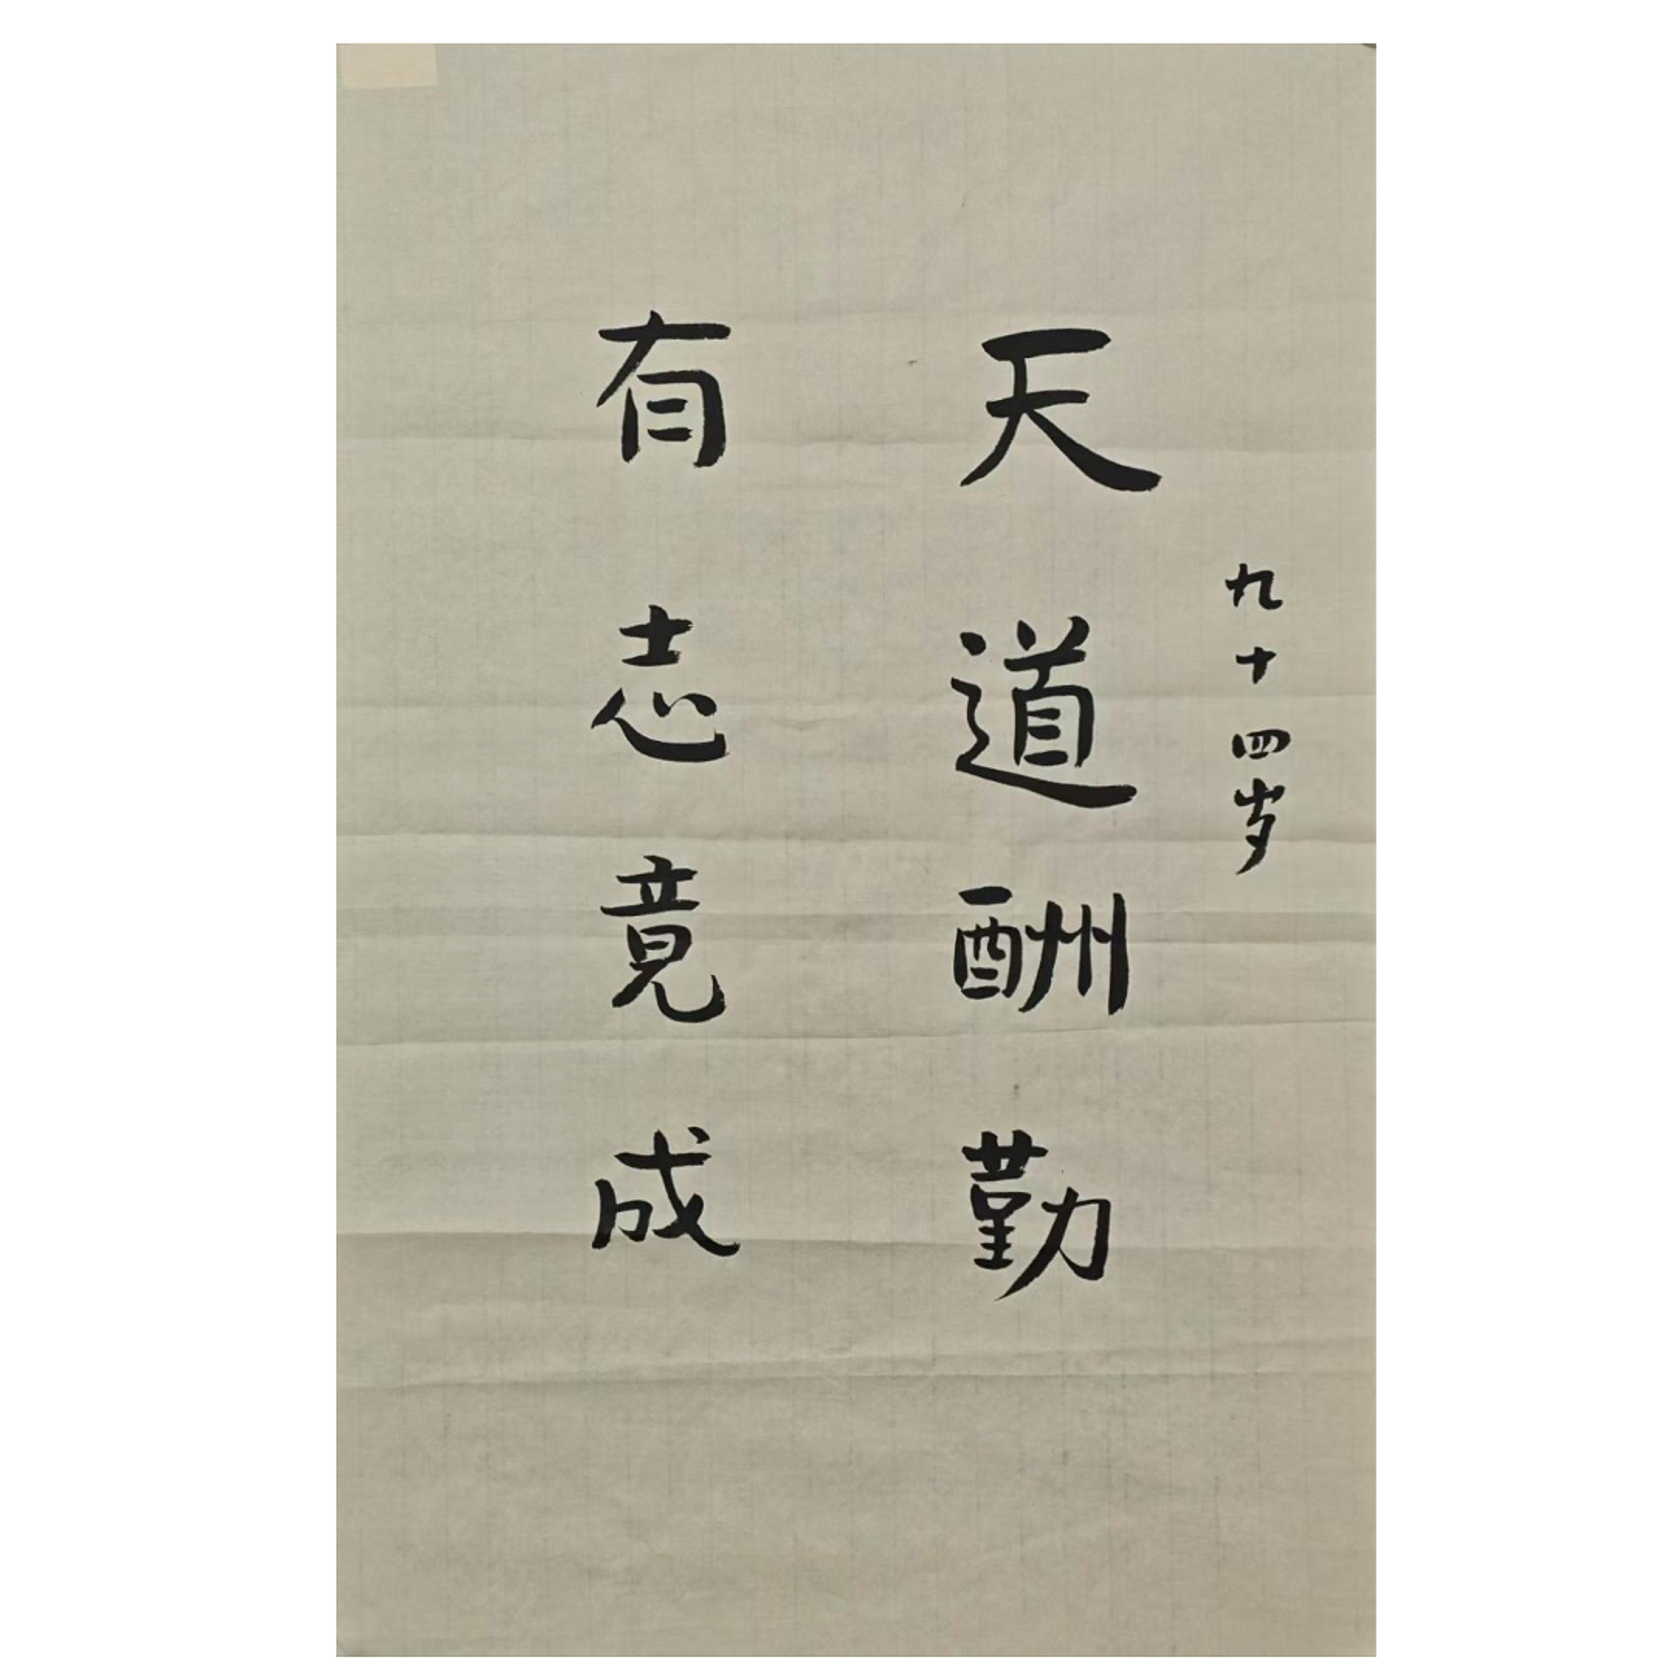 九十四岁
天道酬勤
有志竟成